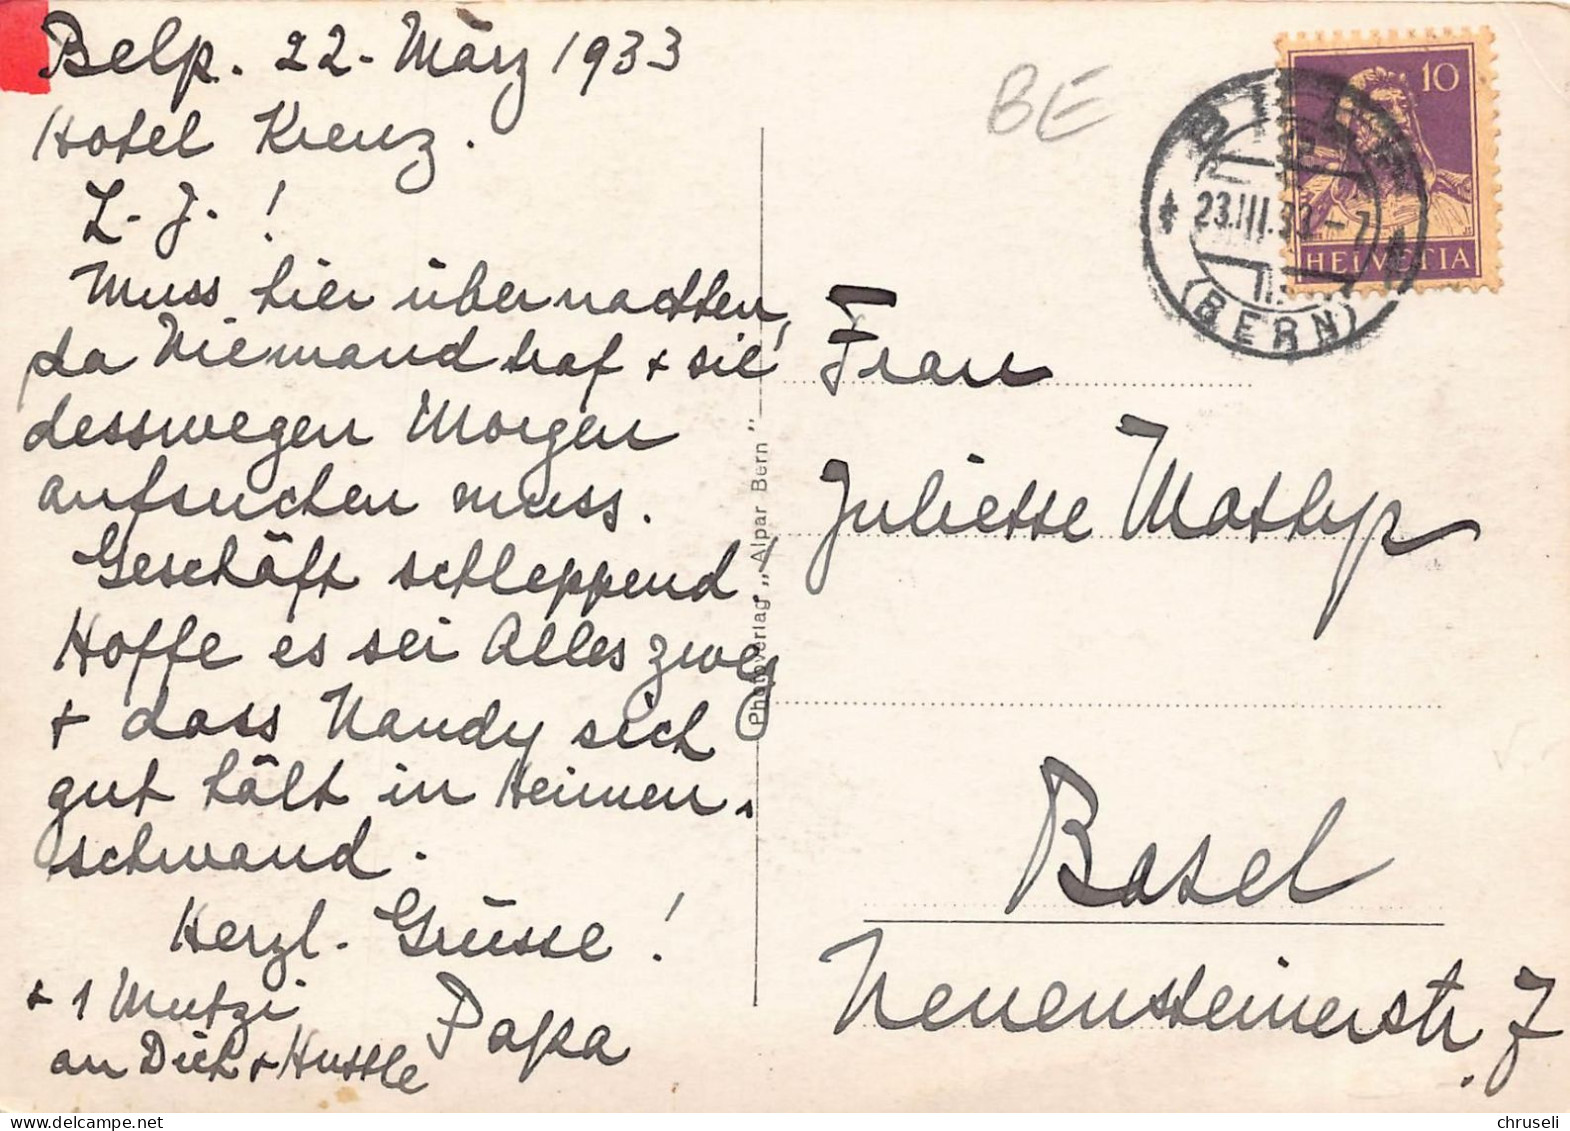 Belp. 22. März 1933
Hotel Kreuz.
L. J. !
Muss hier übernachten,
da Niemand traf + sie
desswegen Morgen
aufsuchen muss.
Geschäft schleppend!
Hoffe es sei Alles zweg
+ dass Nandy sich
gut hält in Heimen-
schwand.
Herzl. Grüsse!
Papa
+ 1 Mutzi
an Dich + Hustle
Photoverlag „Alpar Bern"
BE
10
HELVETIA
23.III.33-7
(BERN)
Frau
Juliette Matthys
Basel
Neuensteinerstr. 7
chruseli